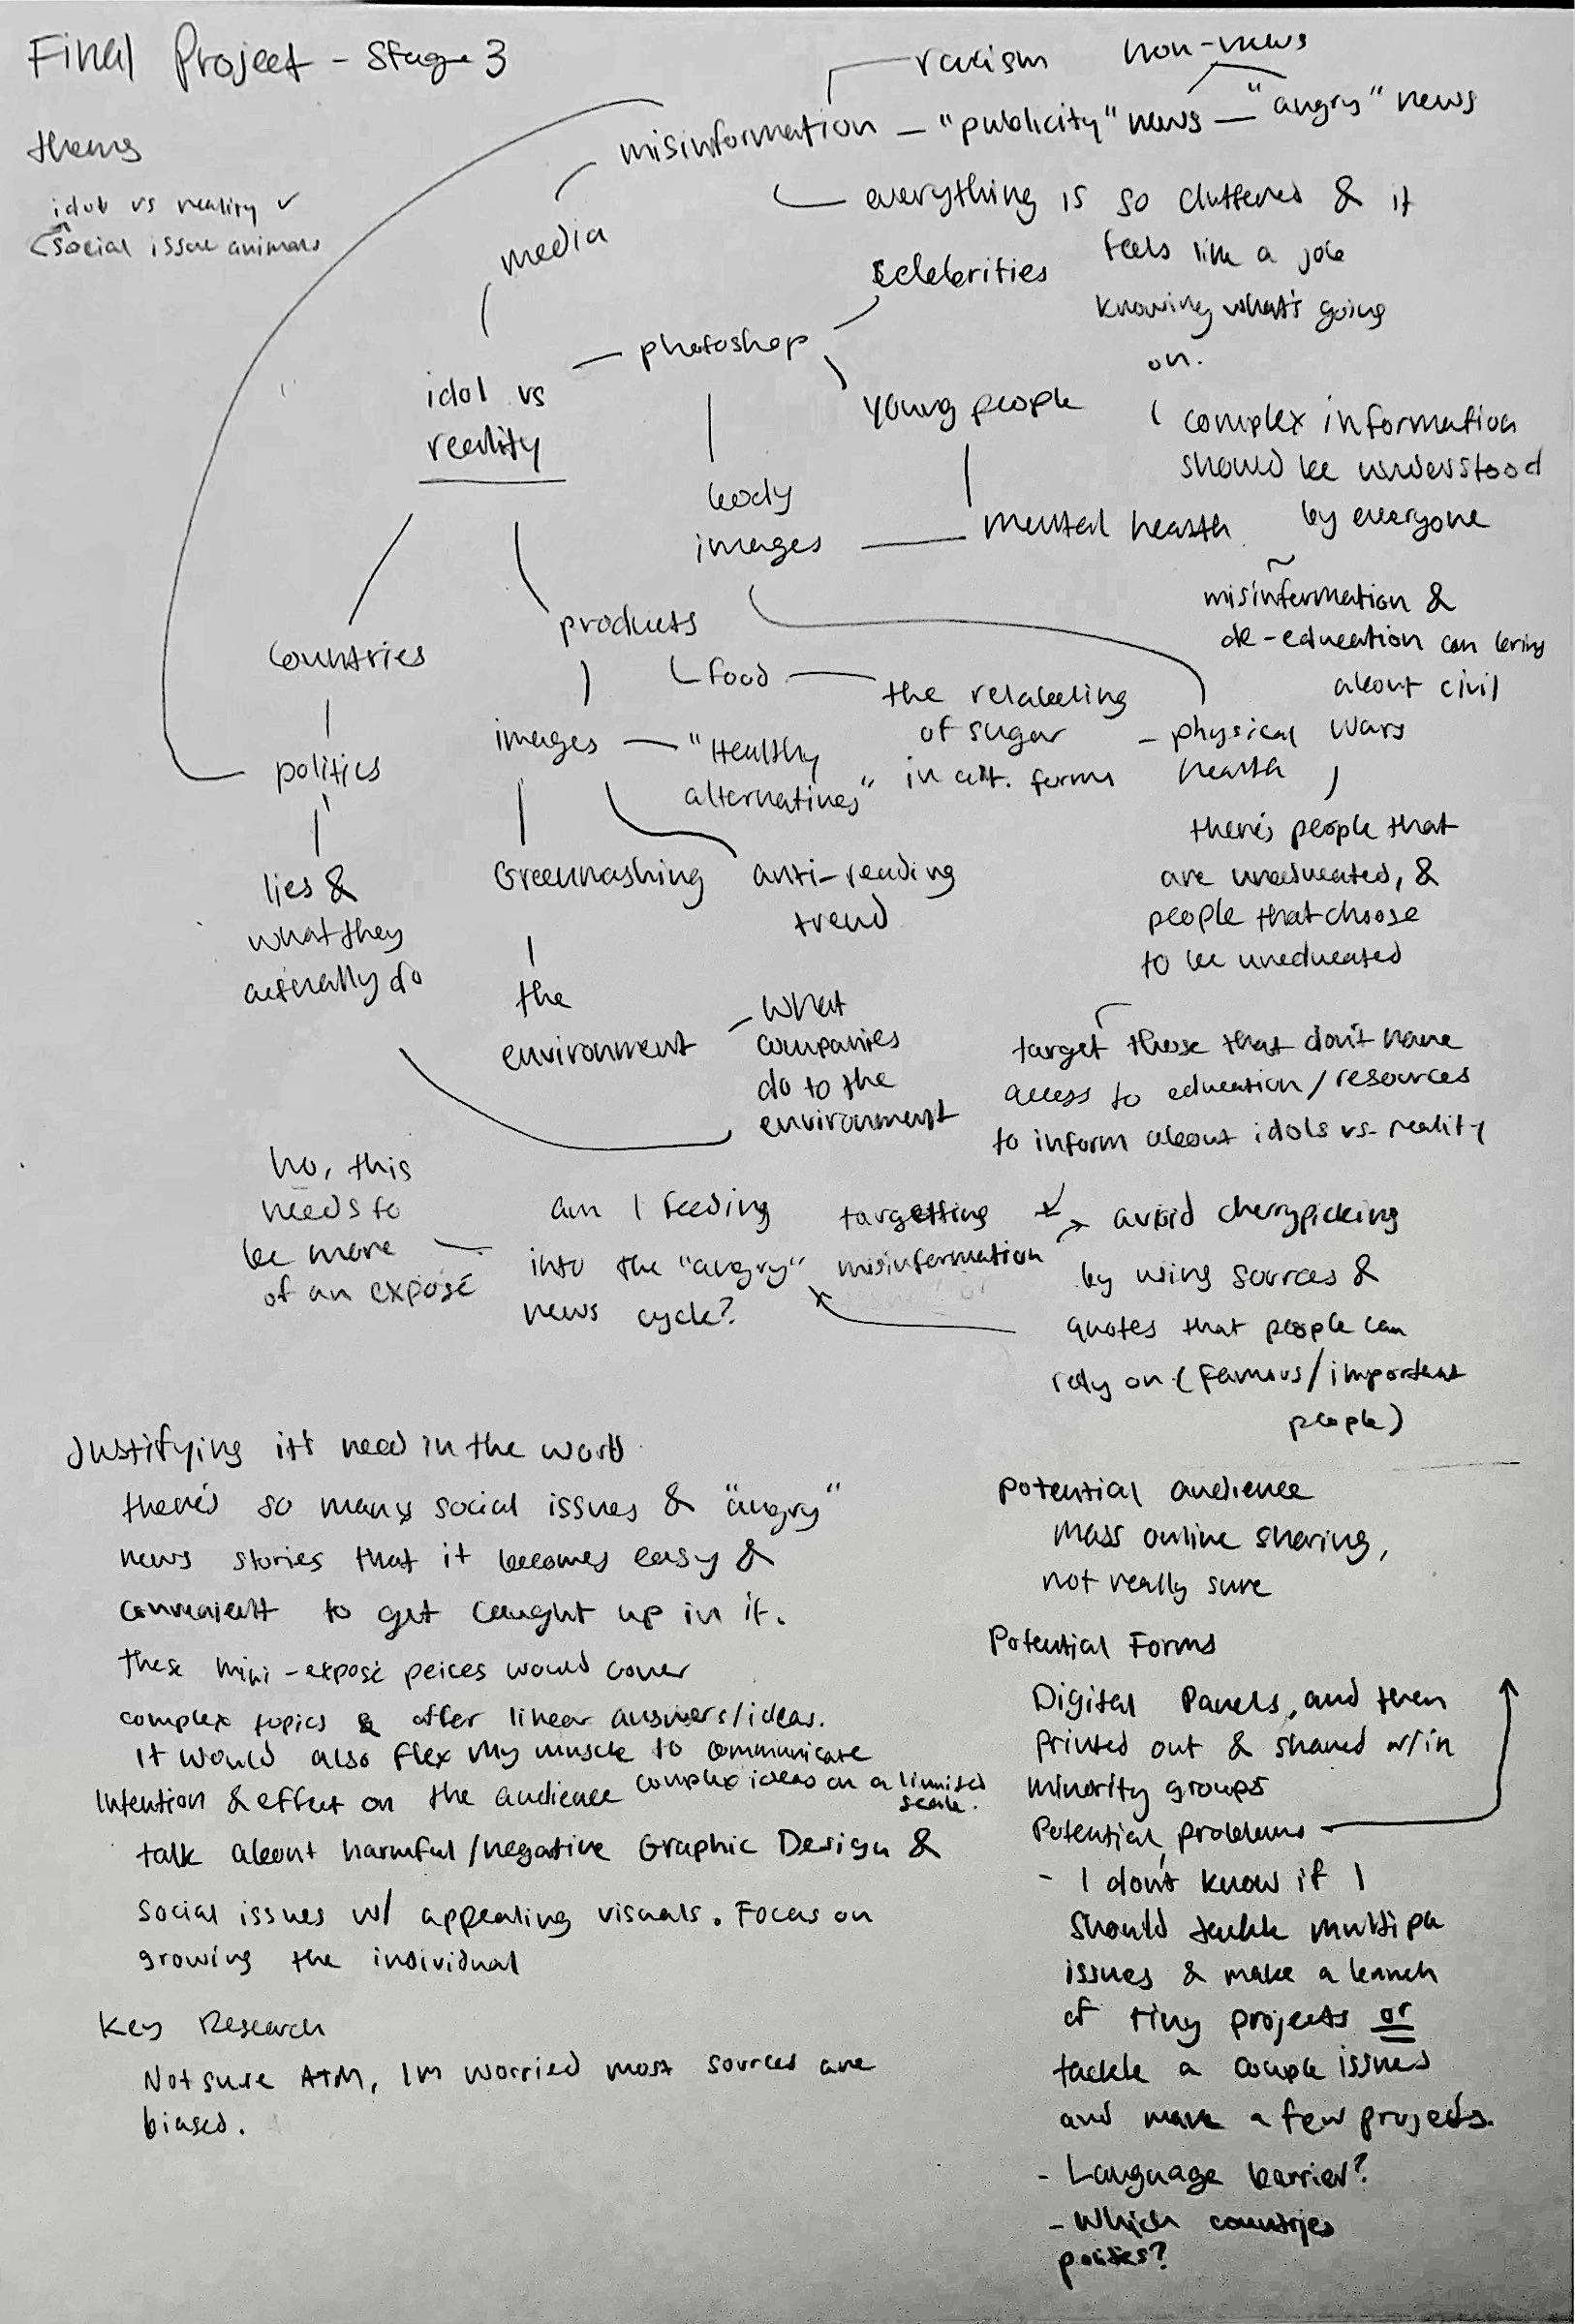 Final Project - Stage 3
thems
idol vs reality ✓
social issue animals
racism
non-news
misinformation - "publicity" news - "angry" news
everything is so cluttered & it
feels like a job
knowing what's going
on.
media
celebrities
photoshop
idol vs
reality
young people
complex information
should be understood
by everyone
body
images
mental health
misinformation &
de-education can bring
about civil
wars
countries
products
food
the relabeling
of sugar
in alt. forms
physical
health
politics
images
"Healthy
alternatives"
there's people that
are uneducated, &
people that choose
to be uneducated
lies &
what they
actually do
Greenwashing
anti-reading
trend
the
environment
what
companies
do to the
environment
target those that don't have
access to education/resources
to inform about idols vs. reality
no, this
needs to
be more
of an exposé
am I feeding
into the "angry"
news cycle?
targetting
misinformation
avoid cherrypicking
by using sources &
quotes that people can
rely on (famous/important
people)
Justifying it's need in the world
there's so many social issues & "angry"
news stories that it becomes easy &
convenient to get caught up in it.
these mini-exposé peices would cover
complex topics & offer linear answers/ideas.
It would also flex my muscle to communicate
complex ideas on a limited
scale.
Intention & effect on the audience
talk about harmful/negative Graphic Design &
social issues w/ appealing visuals. Focus on
growing the individual
Key Research
Not sure ATM, Im worried most sources are
biased.
Potential audience
Mass online sharing,
not really sure
Potential Forms
Digital Panels, and then
printed out & shared w/in
minority groups
Potential problems
- I don't know if I
should tackle multiple
issues & make a bunch
of tiny projects or
tackle a couple issues
and make a few projects.
- Language barrier?
- Which countries
politics?